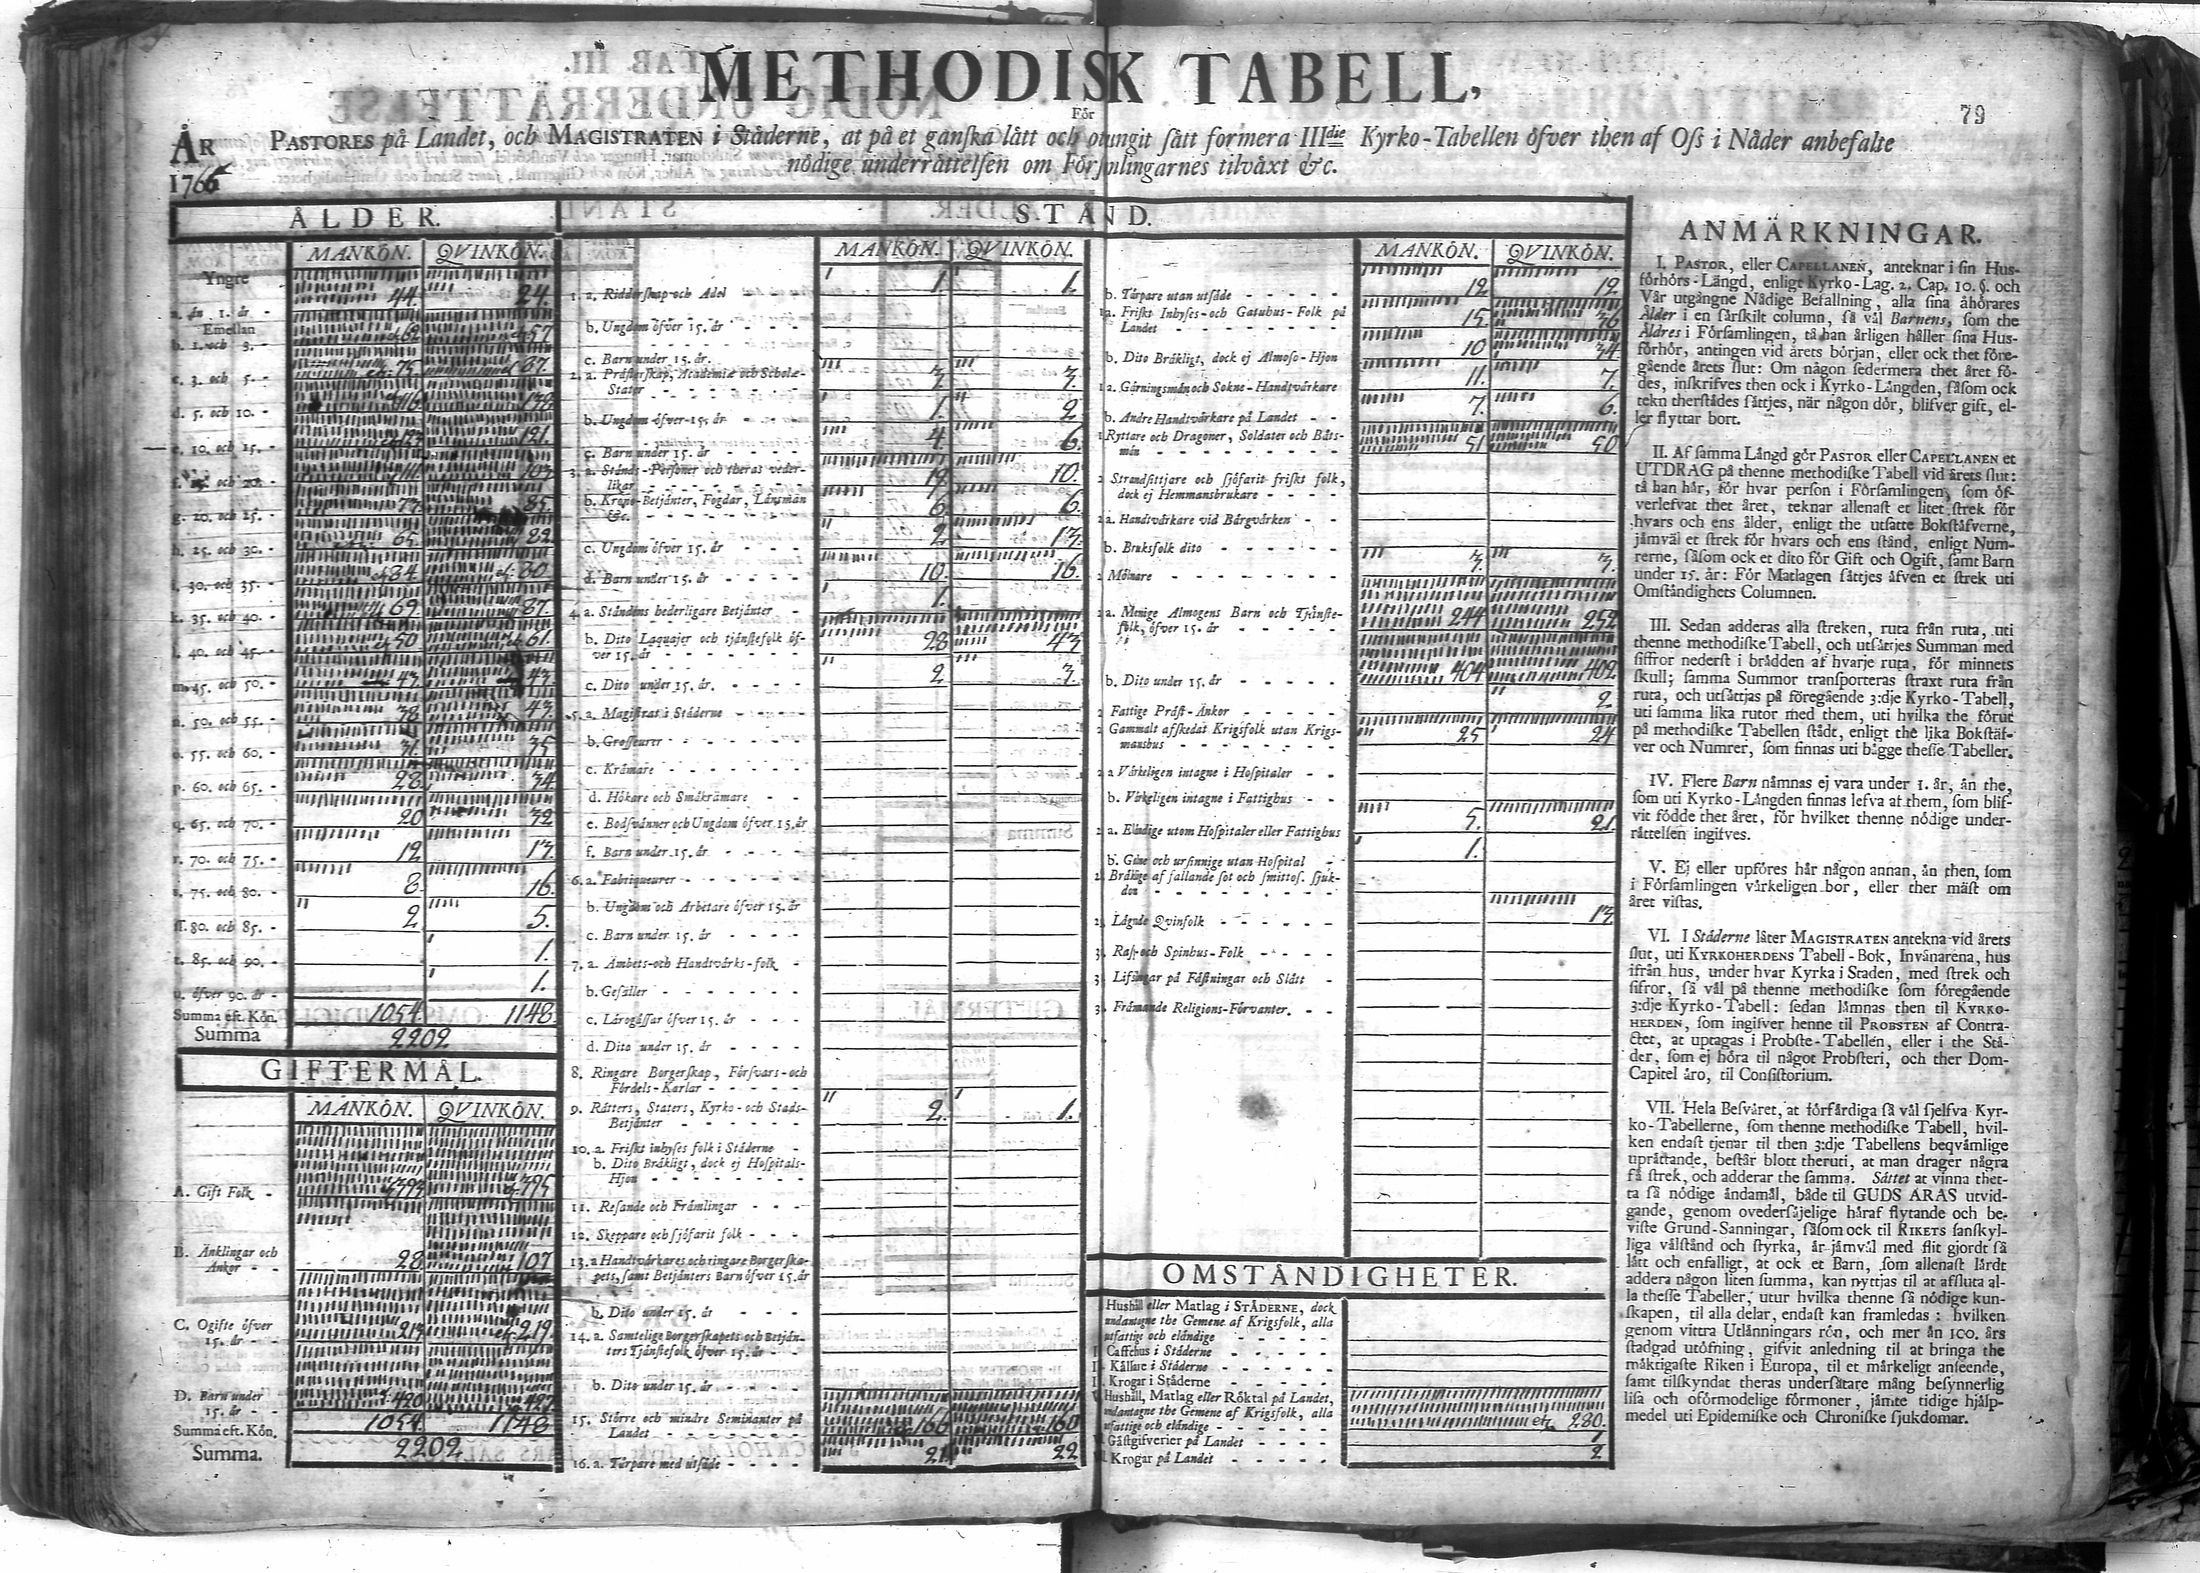 METHODISK TABELL,
79
För
ÅR
1766
PASTORES på Landet, och MAGISTRATEN i Städerne, at på et ganska lätt och otvngit sätt formera IIIdie Kyrko-Tabellen öfver then af Oss i Nåder anbefalte
nödige underrättelsen om Församlingarnes tilväxt &c.
ÅLDER.
MANKÖN. QVINKÖN.
Yngre
än 1. år - 44. 24.
Emellan
b. 1. och 3. - 62 57
c. 3. och 5. - 75. 87.
d. 5. och 10. - 116. 138.
e. 10. och 15. - 121.
och 20. - 111. 107
g. 20. och 25. - 77. 85.
h. 25. och 30. - 65.
i. 30. och 35. - 84. 80
k. 35. och 40. - 69. 87.
l. 40. och 45. - 50 61.
m. 45. och 50. - 47. 47
n. 50. och 55. - 38. 47.
o. 55. och 60. - 31. 35
p. 60. och 65. - 28. 34.
q. 65. och 70. - 20 32
r. 70. och 75. - 12 17.
s. 75. och 80. - 8. 16.
ſſ. 80. och 85. - 2 5.
t. 85. och 90. - 1.
u. öfver 90. år - 1.
Summa eft. Kön. 1054. 1148.
Summa 2202
GIFTERMÅL.
MANKÖN. QVINKÖN.
A. Gift Folk - 393 395
B. Änklingar och
Änkor - - 28. 107
C. Ogifte öfver
15. år - - 213 219.
D. Barn under
15. år - - 420 427
Summa eft. Kön. 1054. 1148
Summa. 2202.
STÅND.
MANKÖN. QVINKÖN.
1. a. Ridderskap och Adel - - 1. 1.
b. Ungdom öfver 15. år - - - -
c. Barn under 15. år.
2. a. Prästerskap, Academiæ och Scholæ-
Stater - - - - 7. 7.
b. Ungdom öfver 15. år - - 1. 2
c. Barn under 15. år - - - - 4 6.
3. a. Stånds-Personer och theras veder-
likar - - - - 19. 10.
b. Krono-Betjänter, Fogdar, Länsmän
&c. - - - - 6. 6.
c. Ungdom öfver 15. år - - - - 2 17.
d. Barn under 15. år - - - - 10. 16.
4. a. Ståndens hederligare Betjänter - 1.
b. Dito Laquajer och tjänstefolk öf-
ver 15. år - - - - 28 43
c. Dito under 15. år. - - - - 2 3.
5. a. Magistrat i Städerne - - - -
b. Grosseurer - - - -
c. Krämare - - - -
d. Hökare och Småkrämare - - -
e. Bodsvänner och Ungdom öfver 15. år
f. Barn under 15. år - - - -
6. a. Fabriqueurer - - - -
b. Ungdom och Arbetare öfver 15. år
c. Barn under 15. år - - - -
7. a. Ämbets-och Handtvärks-folk -
b. Gesäller - - - -
c. Lärogåssar öfver 15. år - - -
d. Dito under 15. år - - - -
8. Ringare Borgerskap, Försvars-och
Fördels-Karlar - - - -
9. Rätters, Staters, Kyrko-och Stads-
Betjänter - - - - 2. 1.
10. a. Friskt inhyses folk i Städerne -
b. Dito Bräkligt, dock ej Hospitals-
Hjon - - - -
11. Resande och Främlingar - - -
12. Skeppare och sjöfarit folk - - -
13. a Handtvärkares och ringare Borgerska-
pets, samt Betjänters Barn öfver 15. år
b. Dito under 15. år - - - -
14. a. Samtelige Borgerskapets och Betjän-
ters Tjänstefolk öfver 15. år - - -
b. Dito under 15. år - - - -
15. Större och mindre Seminanter på
Landet - - - - 166 160
16. a. Torpare med utsäde - - - - 21. 22
MANKÖN. QVINKÖN.
b. Torpare utan utsäde - - - - 12 12.
a. Friskt Inhyses-och Gatuhus-Folk på
Landet - - - - 15. 36
b. Dito Bräkligt, dock ej Almoso-Hjon 10 34.
a. Gärningsmän och Sokne-Handtvärkare 11. 7.
b. Andre Handtvärkare på Landet - - 7. 6.
Ryttare och Dragoner, Soldater och Båts-
män - - - - 51 50
Strandsittjare och sjöfarit friskt folk,
dock ej Hemmansbrukare - - - -
a. Handtvärkare vid Bärgvärken - -
b. Bruksfolk dito - - - -
Mölnare - - - - 3. 3.
a. Menige Almogens Barn och Tjänste-
folk, öfver 15. år - - - - 244 252
b. Dito under 15. år - - - - 404 402
Fattige Präst-Änkor - - - - 2
Gammalt afskedat Krigsfolk utan Krigs-
manshus - - - - 25 24
a Värkeligen intagne i Hospitaler - -
b. Värkeligen intagne i Fattighus - -
a. Eländige utom Hospitaler eller Fattighus 5. 21.
b. Galne och ursinnige utan Hospital - 1.
Bräklige af fallande sot och smittos. sjuk-
dom - - - -
Lägnde Qvinfolk - - - - 13.
Rasp-och Spinhus-Folk - - - -
Lifsfångar på Fästningar och Slått -
Främande Religions-Förvanter. - -
OMSTÄNDIGHETER.
Hushåll eller Matlag i STÄDERNE, dock
undantagne the Gemene af Krigsfolk, alla
utfattige och eländige - - - -
Caffehus i Städerne - - - -
Källare i Städerne - - - -
Krogar i Städerne - - - -
Hushåll, Matlag eller Röktal på Landet,
undantagne the Gemene af Krigsfolk, alla
utfattige och eländige - - - - 280.
Gästgifverier på Landet - - - - 1
Krogar på Landet - - - - 2
ANMÄRKNINGAR.
I. PASTOR, eller CAPELLANEN, anteknar i sin Hus-
förhörs-Längd, enligt Kyrko-Lag. 2. Cap. 10. §. och
Vår utgångne Nådige Befallning, alla sina åhörares
Ålder i en särskilt column, så väl Barnens, som the
Äldres i Församlingen, tå han årligen håller sina Hus-
förhör, antingen vid årets början, eller ock thet före-
gående årets slut: Om någon sedermera thet året fö-
des, inskrifves then ock i Kyrko-Längden, såsom ock
tekn therstädes sättjes, när någon dör, blifver gift, el-
ler flyttar bort.
II. Af samma Längd gör PASTOR eller CAPELLANEN et
UTDRAG på thenne methodiske Tabell vid årets slut:
tå han här, för hvar person i Församlingen, som öf-
verlefvat thet året, teknar allenast et litet strek för
hvars och ens ålder, enligt the utsatte Bokstäfverne,
jämväl et strek för hvars och ens stånd, enligt Num-
rerne, såsom ock et dito för Gift och Ogift, samt Barn
under 15. år: För Matlagen sättjes äfven et strek uti
Omständighets Columnen.
III. Sedan adderas alla streken, ruta från ruta, uti
thenne methodiske Tabell, och utsättjes Summan med
siffror nederst i brädden af hvarje ruta, för minnets
skull; samma Summor transporteras straxt ruta från
ruta, och utsättjas på föregående 3:dje Kyrko-Tabell,
uti samma lika rutor med them, uti hvilka the förut
på methodiske Tabellen städt, enligt the lika Bokstäf-
ver och Numrer, som finnas uti bägge thesse Tabeller.
IV. Flere Barn nämnas ej vara under 1. år, än the,
som uti Kyrko-Längden finnas lefva af them, som blif-
vit födde thet året, för hvilket thenne nödige under-
rättelsen ingifves.
V. Ej eller upföres här någon annan, än then, som
i Församlingen värkeligen bor, eller ther mäst om
året vistas.
VI. I Städerne låter MAGISTRATEN antekna vid årets
slut, uti KYRKOHERDENS Tabell-Bok, Invånarena, hus
ifrån hus, under hvar Kyrka i Staden, med strek och
sifror, så väl på thenne methodiske som föregående
3:dje Kyrko-Tabell: sedan lämnas then til KYRKO-
HERDEN, som ingifver henne til PROBSTEN af Contra-
ctet, at uptagas i Probste-Tabellen, eller i the Stä-
der, som ej höra til något Probsteri, och ther Dom-
Capitel äro, til Consistorium.
VII. Hela Besväret, at förfärdiga så väl sjelfva Kyr-
ko-Tabellerne, som thenne methodiske Tabell, hvil-
ken endast tjenar til then 3:dje Tabellens beqvämlige
uprättande, består blott theruti, at man drager några
få strek, och adderar the samma. Sättet at vinna thet-
ta så nödige ändamål, både til GUDS ÄRAS utvid-
gande, genom ovedersäjelige häraf flytande och be-
viste Grund-Sanningar, såsom ock til RIKETS sanskyl-
liga välstånd och styrka, är jämväl med flit gjordt så
lätt och enfalligt, at ock et Barn, som allenast lärdt
addera någon liten summa, kan nyttjas til at afsluta al-
la thesse Tabeller, utur hvilka thenne så nödige kun-
skapen, til alla delar, endast kan framledas: hvilken
genom vittra Utlänningars rön, och mer än 100. års
stadgad utöfning, gifvit anledning til at bringa the
mäktigaste Riken i Europa, til et märkeligt anseende,
samt tilskyndat theras undersåtare mång besynnerlig
lisa och oförmodelige förmoner, jämte tidige hjälp-
medel uti Epidemiske och Chroniske sjukdomar.